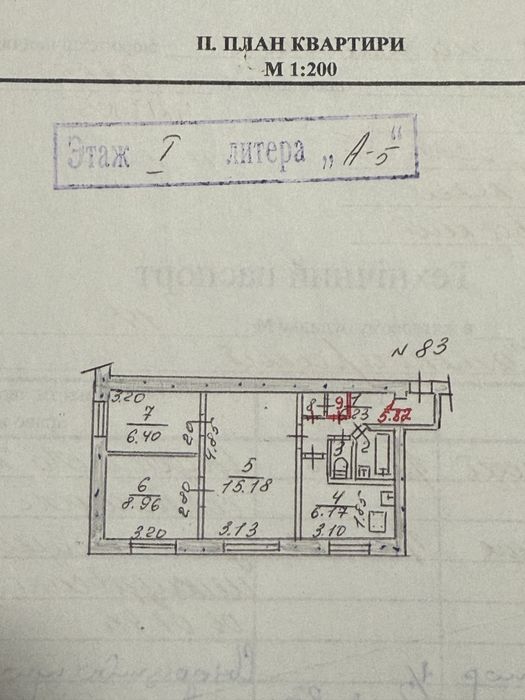 II. ПЛАН КВАРТИРИ
М 1:200
Этаж I литера „А-5“
N 83
3.20
7
6.40
2.0
4.85
5
15.18
3.13
6
8.96
2.80
3.20
8
9
1
5.82
3
2
4
6.17
1.85
3.10
Технічний паспорт